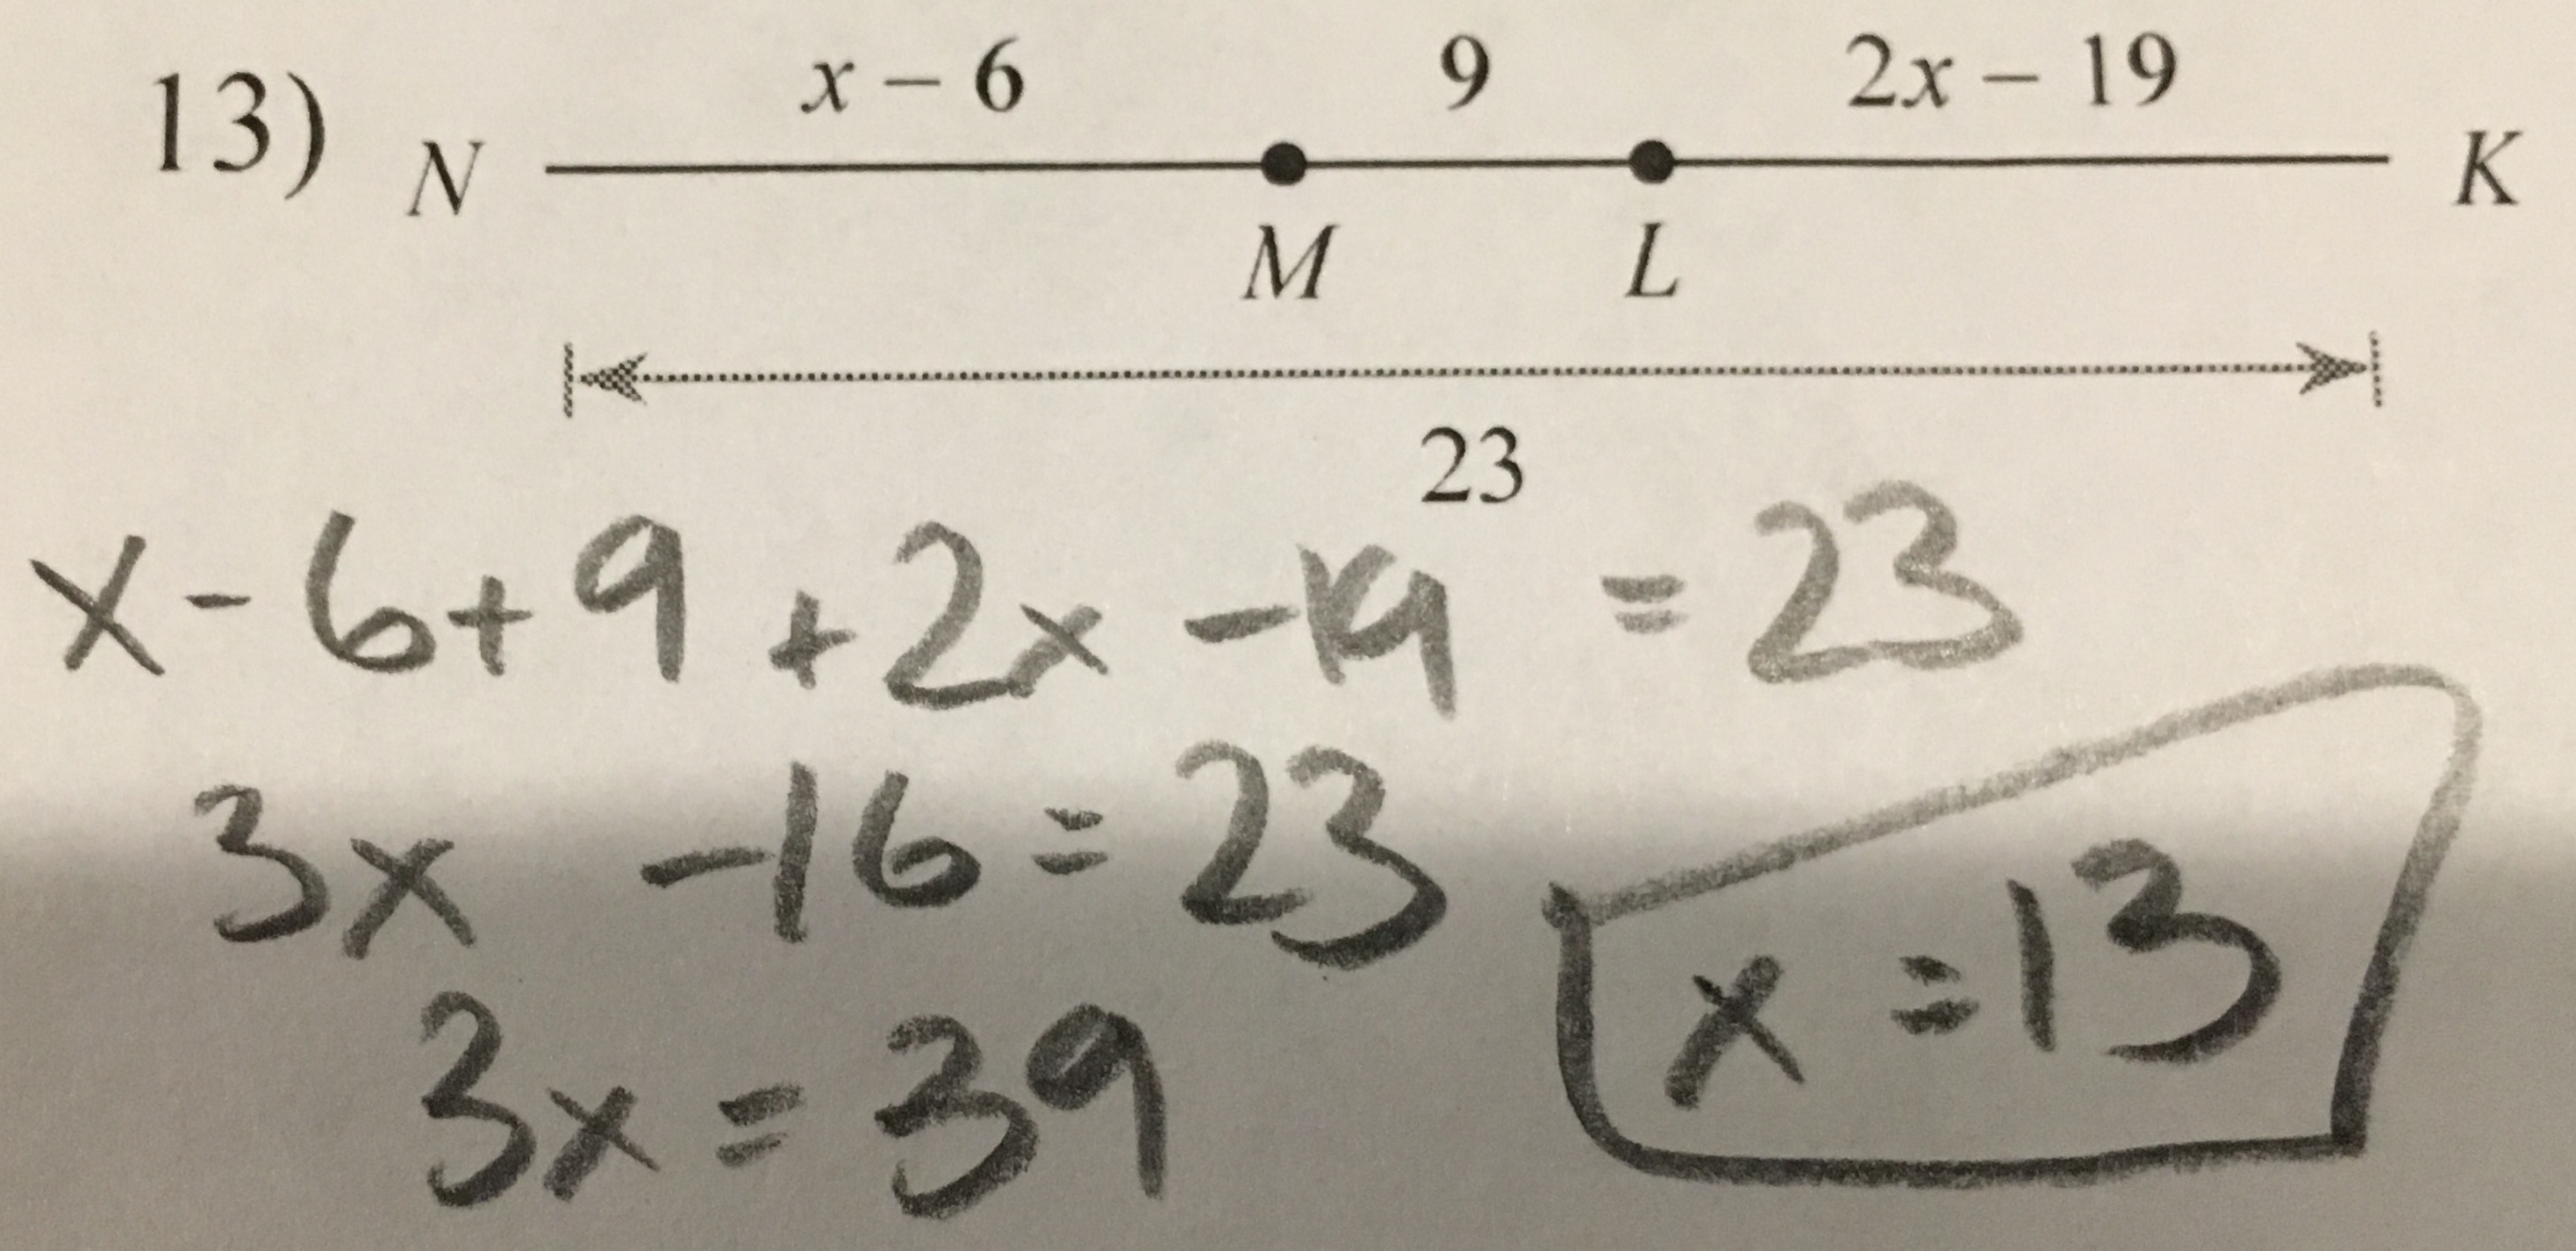 13) N x – 6 9 2x – 19 K
M L
23
x - 6 + 9 + 2x - 19 = 23
3x - 16 = 23
3x = 39
x = 13